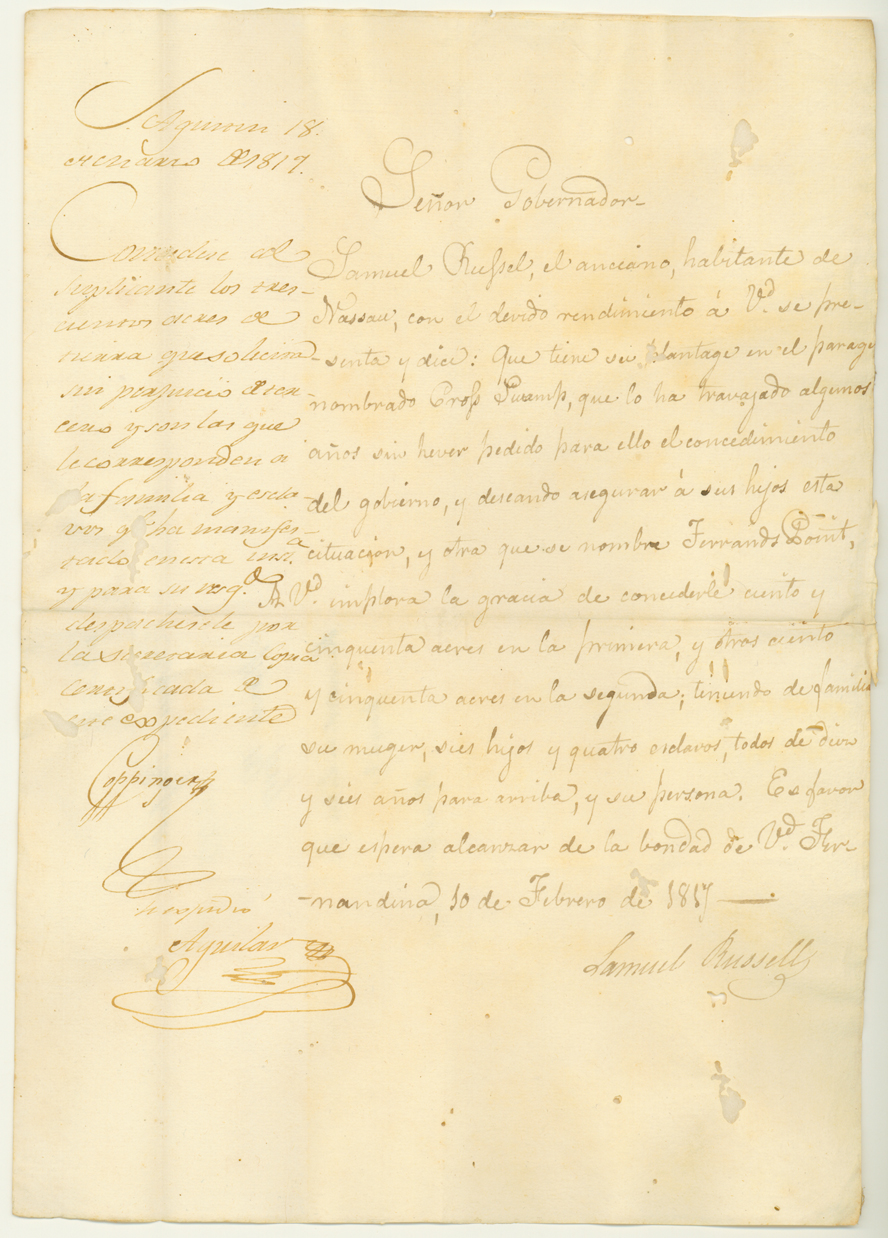 S. Agustin 18.
de Marzo de 1817.
Concedense al
suplicante los tres-
cientos acres de
tierra que solicita
sin perjuicio de ter-
cero y son las que
le corresponden a
la familia y escla-
vos qe. ha manifes-
tado en esta insta.
y para su resgo.
despachesele por
la secretaria copia
certificada de
este expediente
Coppinger
Se expidió
Aguilar
Señor Gobernador
Samuel Russel, el anciano, habitante de
Nassau, con el devido rendimiento á Vd. se pre-
-senta y dice: Que tiene su plantage en el parage
nombrado Cross Swamp, que lo ha travajado algunos
años sin hever pedido para ello el concedimiento
del gobierno, y deseando asegurar á sus hijos esta
cituación, y otra que se nombre Ferrands Point,
A Vd. implora la gracia de concederle ciento y
cinquenta acres en la primera, y otros ciento
y cinquenta acres en la segunda; tiniendo de familia
su muger, sies hijos y quatro esclavos, todos de diez
y sies años para arriba, y su persona. Es favor
que espera alcanzar de la bondad de Vd. Fer-
-nandina, 10 de Febrero de 1817
Samuel Russell